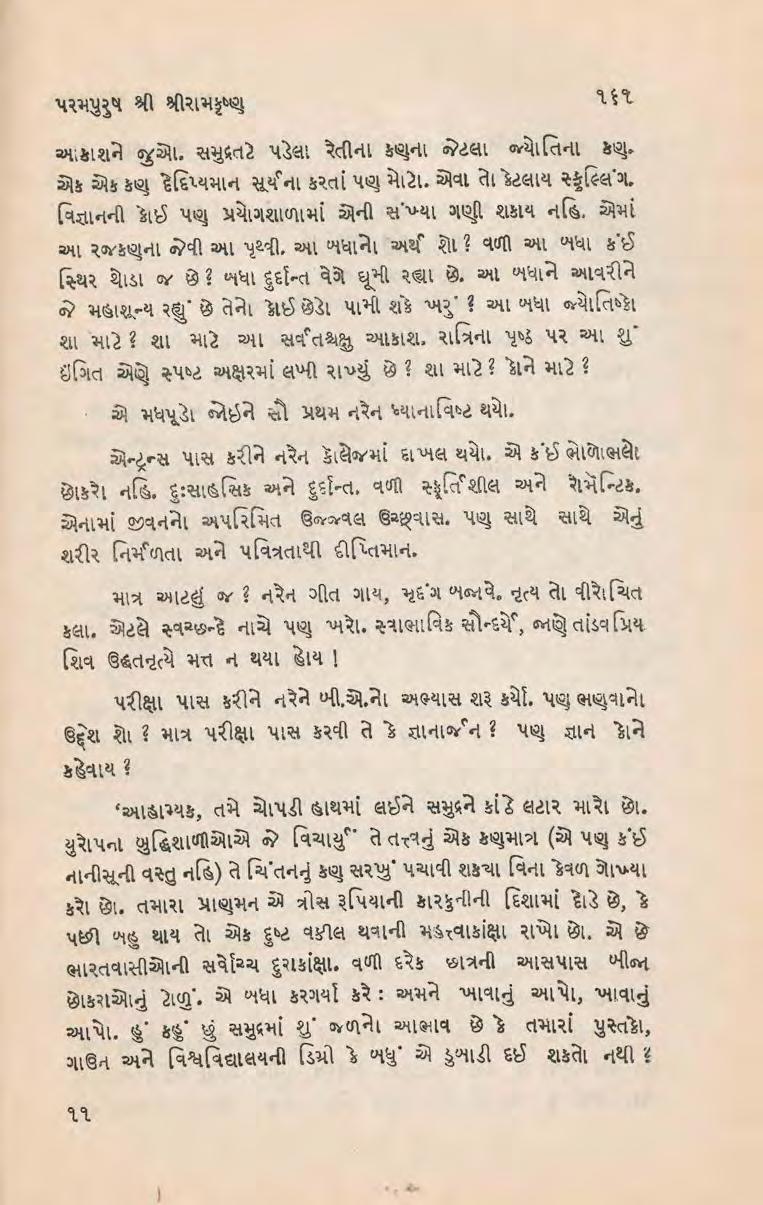 પરમપુરુષ શ્રી શ્રીરામકૃષ્ણ ૧૬૧
આકાશને જુઓ. સમુદ્રતટે પડેલા રેતીના કણના જેટલા જ્યોતિના કણ.
એક એક કણ દેદિપ્યમાન સૂર્યના કરતાં પણ મોટો. એવા તો કેટલાય સ્ફુલ્લિંગ.
વિજ્ઞાનની કોઈ પણ પ્રયોગશાળામાં એની સંખ્યા ગણી શકાય નહિ. એમાં
આ રજકણના જેવી આ પૃથ્વી. આ બધાનો અર્થ શો ? વળી આ બધા કંઈ
સ્થિર થોડા જ છે ? બધા દુર્દાન્ત વેગે ઘૂમી રહ્યા છે. આ બધાને આવરીને
જે મહાશૂન્ય રહ્યું છે તેનો કોઈ છેડો પામી શકે ખરું ? આ બધા જ્યોતિષ્કો
શા માટે ? શા માટે આ સર્વતશ્ચક્ષુ આકાશ. રાત્રિના પૃષ્ઠ પર આ શું
ઇંગિત એણે સ્પષ્ટ અક્ષરમાં લખી રાખ્યું છે ? શા માટે ? કોને માટે ?
એ મધપૂડો જોઈને સૌ પ્રથમ નરેન ધ્યાનાવિષ્ટ થયો.
એન્ટ્રન્સ પાસ કરીને નરેન કૉલેજમાં દાખલ થયો. એ કંઈ ભોળોભલો
છોકરો નહિ. દુઃસાહસિક અને દુર્દાન્ત. વળી સ્ફૂર્તિશીલ અને રોમૅન્ટિક.
એનામાં જીવનનો અપરિમિત ઉજ્જ્વલ ઉચ્છ્વાસ. પણ સાથે સાથે એનું
શરીર નિર્મળતા અને પવિત્રતાથી દીપ્તિમાન.
માત્ર આટલું જ ? નરેન ગીત ગાય, મૃદંગ બજાવે. નૃત્ય તો વીરોચિત
કલા. એટલે સ્વચ્છન્દે નાચે પણ ખરો. સ્વાભાવિક સૌન્દર્યે, જાણે તાંડવપ્રિય
શિવ ઉદ્ધતનૃત્યે મત્ત ન થયા હોય !
પરીક્ષા પાસ કરીને નરેને બી.એ.નો અભ્યાસ શરૂ કર્યો. પણ ભણવાનો
ઉદ્દેશ શો ? માત્ર પરીક્ષા પાસ કરવી તે કે જ્ઞાનાર્જન ? પણ જ્ઞાન કોને
કહેવાય ?
‘આહામ્યક, તમે ચોપડી હાથમાં લઈને સમુદ્રને કાંઠે લટાર મારો છો.
યુરોપના બુદ્ધિશાળીઓએ જે વિચાર્યું તે તત્ત્વનું એક કણમાત્ર (એ પણ કંઈ
નાનીસૂની વસ્તુ નહિ) તે ચિંતનનું કણ સરખું પચાવી શકયા વિના કેવળ ગોખ્યા
કરો છો. તમારા પ્રાણમન એ ત્રીસ રૂપિયાની કારકુનીની દિશામાં દોડે છે, કે
પછી બહુ થાય તો એક દુષ્ટ વકીલ થવાની મહત્ત્વાકાંક્ષા રાખો છો. એ છે
ભારતવાસીઓની સર્વોચ્ચ દુરાકાંક્ષા. વળી દરેક છાત્રની આસપાસ બીજા
છોકરાઓનું ટોળું. એ બધા કરગર્યા કરે : અમને ખાવાનું આપો, ખાવાનું
આપો. હું કહું છું સમુદ્રમાં શું જળનો આભાવ છે કે તમારાં પુસ્તકો,
ગાઉન અને વિશ્વવિદ્યાલયની ડિગ્રી કે બધું એ ડુબાડી દઈ શકતો નથી ?
૧૧